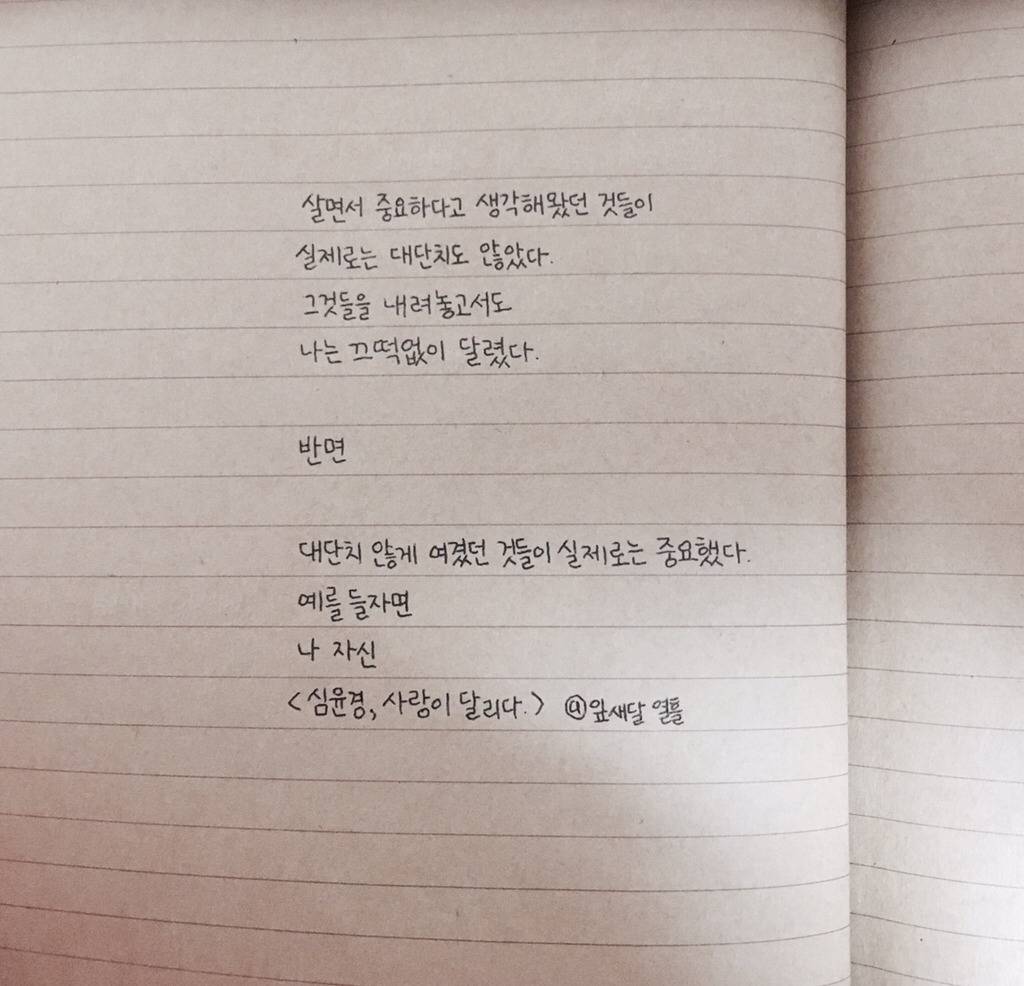 살면서 중요하다고 생각해왔던 것들이
실제로는 대단치도 않았다.
그것들을 내려놓고서도
나는 끄떡없이 달렸다.
반면
대단치 않게 여겼던 것들이 실제로는 중요했다.
예를 들자면
나 자신
<심윤경, 사랑이 달리다.> @앞새달 열흘